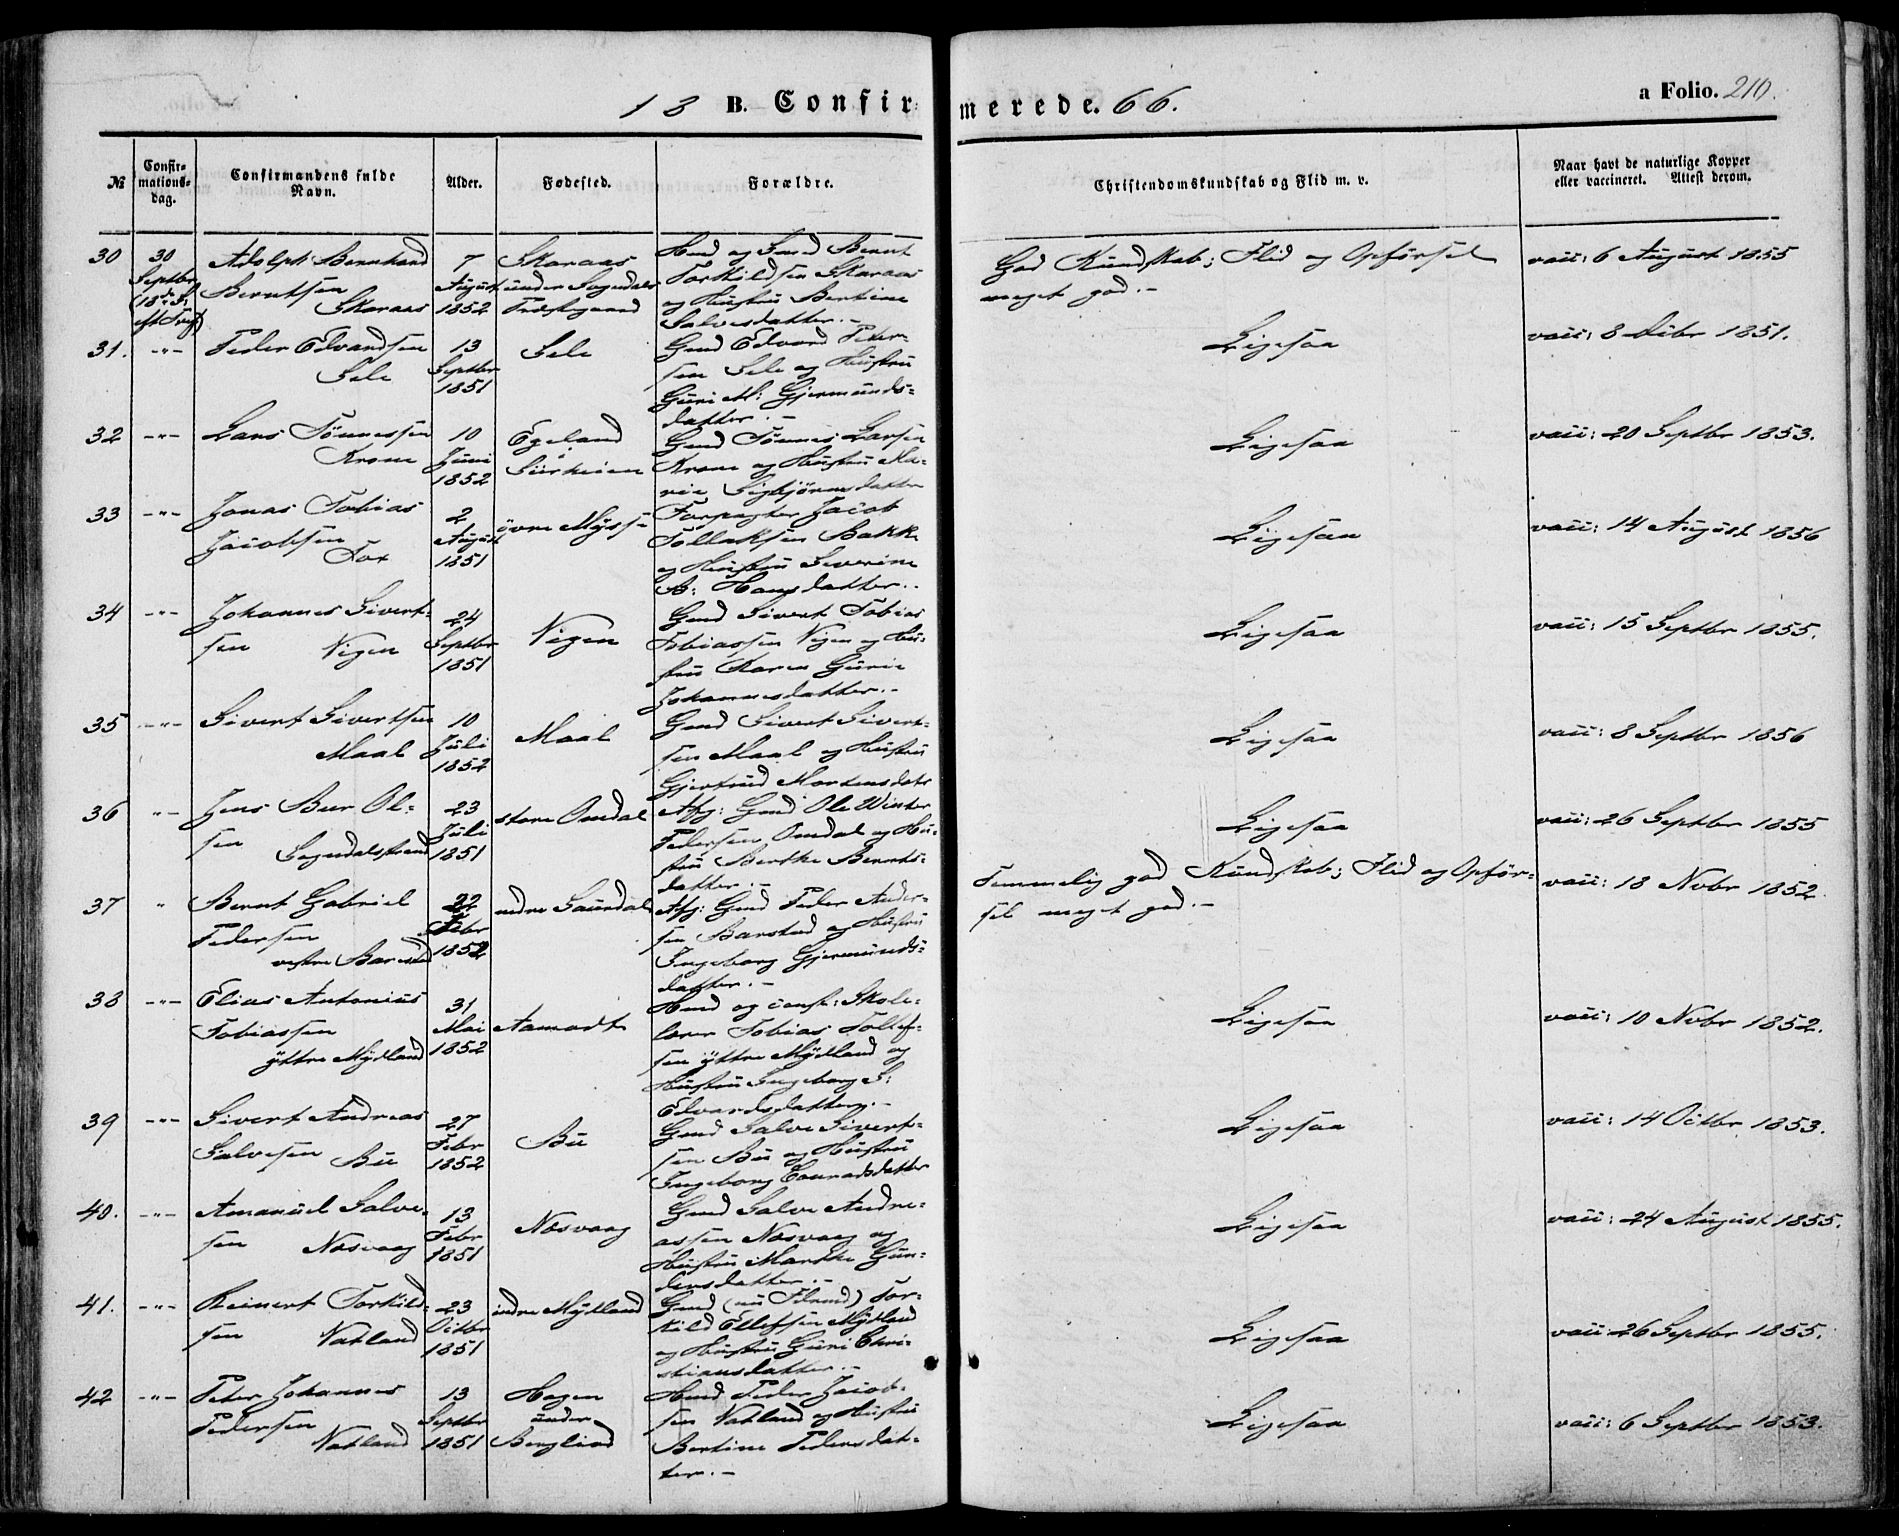 18 B. Confirmerede. 66.
a Folio. 210.
№ Confirmations-dag. Confirmandens fulde Navn. Alder. Fødested. Forældre. Christendomskundskab og Flid m. v. Naar havt de naturlige Kopper eller vaccineret. Attest derom.
30 30 Septbr (18de S. eft Tref) Adolph Bernhard Berntsen Skaraas 7 August 1852 Skaraas under Sogndals Præstegaard Hmd og Smed Bernt Torkildsen Skaraas og Hustru Bertine Salvesdatter.- God Kundskab; Flid og Opførsel meget god.- vacc: 6 August 1855
31. -"- Peder Edvardsen Sele 13 Septbr 1851 Sele Gmd Edvard Petersen Sele og Hustru Guri M: Gjermundsdatter.- Ligesaa vacc: 8 Octbr 1851.
32 -"- Lars Tönnessen Krone 10 Juni 1852 Egeland i Siirheien Gmd Tönnes Larsen Krone og Hustru Marie Sigbjörnsdatter Ligesaa vacc: 20 Septbr 1853.
33 -"- Jonas Tobias Jacobsen Fox 2 August 1851 övre Myssa Forpagter Jacob Tollaksen Bakke og Hustru Severine B: Hansdatter.. Ligesaa vacc: 14 August 1856
34 -"- Johannes Sivertsen Nigen 24 Septbr 1851 Nigen Gmd Sivert Tobias Tobiassen Nigen og Hustru Karen Gurie Johannesdatter.- Ligesaa vacc: 15 Septbr 1855.
35 -"- Sivert Sivertsen Maal 10 Juli 1852 Maal Gmd Sivert Sivertsen Maal og Hustru Gjertrud Mortensdatr Ligesaa vacc: 8 Septbr 1856
36 -"- Jens Bur Olsen Sogndalstrand 23 Juli 1851 store Omdal Afg: Gmd Ole Winter Pedersen Omdal og Hustru Berthe Berntsdatter.- Ligesaa vacc: 26 Septbr 1855
37 " Bernt Gabriel Pedersen vestre Barestad 22 Febr 1852 nedre Saurdal Afg: Gmd Peder Andersen Barstad og Hustru Ingeborg Gjermundsdatter.- Temmelig god Kundskab; Flid og Opførsel meget god.- vacc: 18 Novbr 1852.
38 -"- Elias Antonius Tobiassen yttre Mydland 31 Mai 1852 Aamodt Hmd og const: Skolelærer Tobias Tollefsen yttre Mydland og Hustru Ingeborg S: Edvardsdatter.- Ligesaa vacc: 10 Novbr 1852.
39 -"- Sivert Andreas Salvesen Bu 27 Febr 1852 Bu Gmd Salve Sivertsen Bu og Hustru Ingeborg Conradsdatter Ligesaa vacc: 14 Octbr 1853.
40. -"- Amanuel Salvesen Nesvaag 13 Febr 1851 Nesvaag Gmd Salve Andreassen Nesvaag og Hustru Marthe Gundersdatter.- Ligesaa vacc: 24 August 1855.
41. -"- Reinert Torkildsen Natland 23 Octbr 1851 indre Mydland Gmd (nu Flmd) Torkild Ellefsen Mydland og Hustru Guri Christiansdatter.- Ligesaa vacc: 26 Septbr 1855.
42 -"- Peter Johannes Pedersen Natland 13 Septbr 1851 Hagen under Berglied Hmd Peder Jacobsen Natland og Hustru Bertine Pedersdatter.- Ligesaa vacc: 6 Septbr 1853.